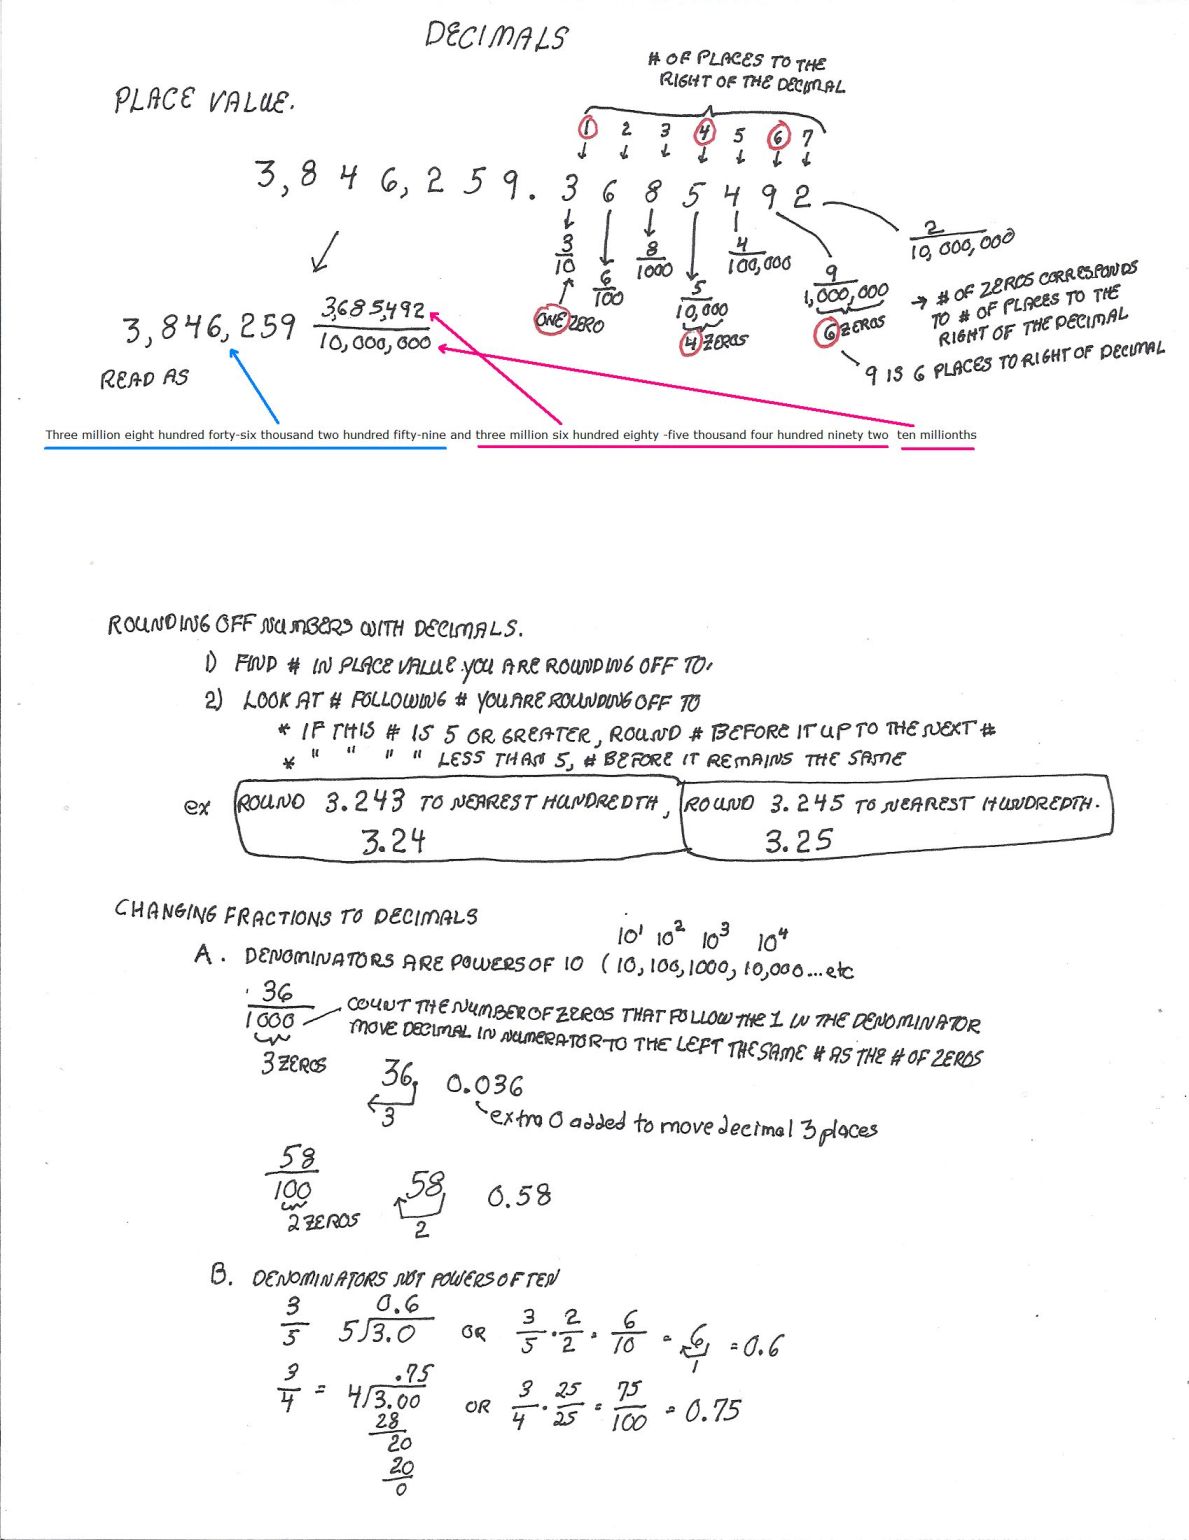 DECIMALS
# OF PLACES TO THE
RIGHT OF THE DECIMAL
PLACE VALUE.
1 2 3 4 5 6 7
3,846,259.3685492
3/10 6/100 8/1000 5/10,000 4/100,000 9/1,000,000 2/10,000,000
ONE ZERO
4 ZEROS
6 ZEROS
→ # OF ZEROS CORRESPONDS
TO # OF PLACES TO THE
RIGHT OF THE DECIMAL
9 IS 6 PLACES TO RIGHT OF DECIMAL
3,846,259 3,685,492/10,000,000
READ AS
Three million eight hundred forty-six thousand two hundred fifty-nine and three million six hundred eighty -five thousand four hundred ninety two ten millionths
ROUNDING OFF NUMBERS WITH DECIMALS.
1) FIND # IN PLACE VALUE YOU ARE ROUNDING OFF TO.
2) LOOK AT # FOLLOWING # YOU ARE ROUNDING OFF TO
* IF THIS # IS 5 OR GREATER, ROUND # BEFORE IT UP TO THE NEXT #
* " " " " LESS THAN 5, # BEFORE IT REMAINS THE SAME
ex ROUND 3.243 TO NEAREST HUNDREDTH, ROUND 3.245 TO NEAREST HUNDREDTH.
3.24 3.25
CHANGING FRACTIONS TO DECIMALS
10¹ 10² 10³ 10⁴
A. DENOMINATORS ARE POWERS OF 10 (10, 100, 1000, 10,000...etc
36/1000 COUNT THE NUMBER OF ZEROS THAT FOLLOW THE 1 IN THE DENOMINATOR
MOVE DECIMAL IN NUMERATOR TO THE LEFT THE SAME # AS THE # OF ZEROS
3 ZEROS 36. 0.036
3
extra 0 added to move decimal 3 places
58/100 58. 0.58
2 ZEROS 2
B. DENOMINATORS NOT POWERS OF TEN
0.6
3/5 5)3.0 OR 3/5 · 2/2 = 6/10 = 6. = 0.6
1
.75
3/4 = 4)3.00 OR 3/4 · 25/25 = 75/100 = 0.75
28
20
20
0